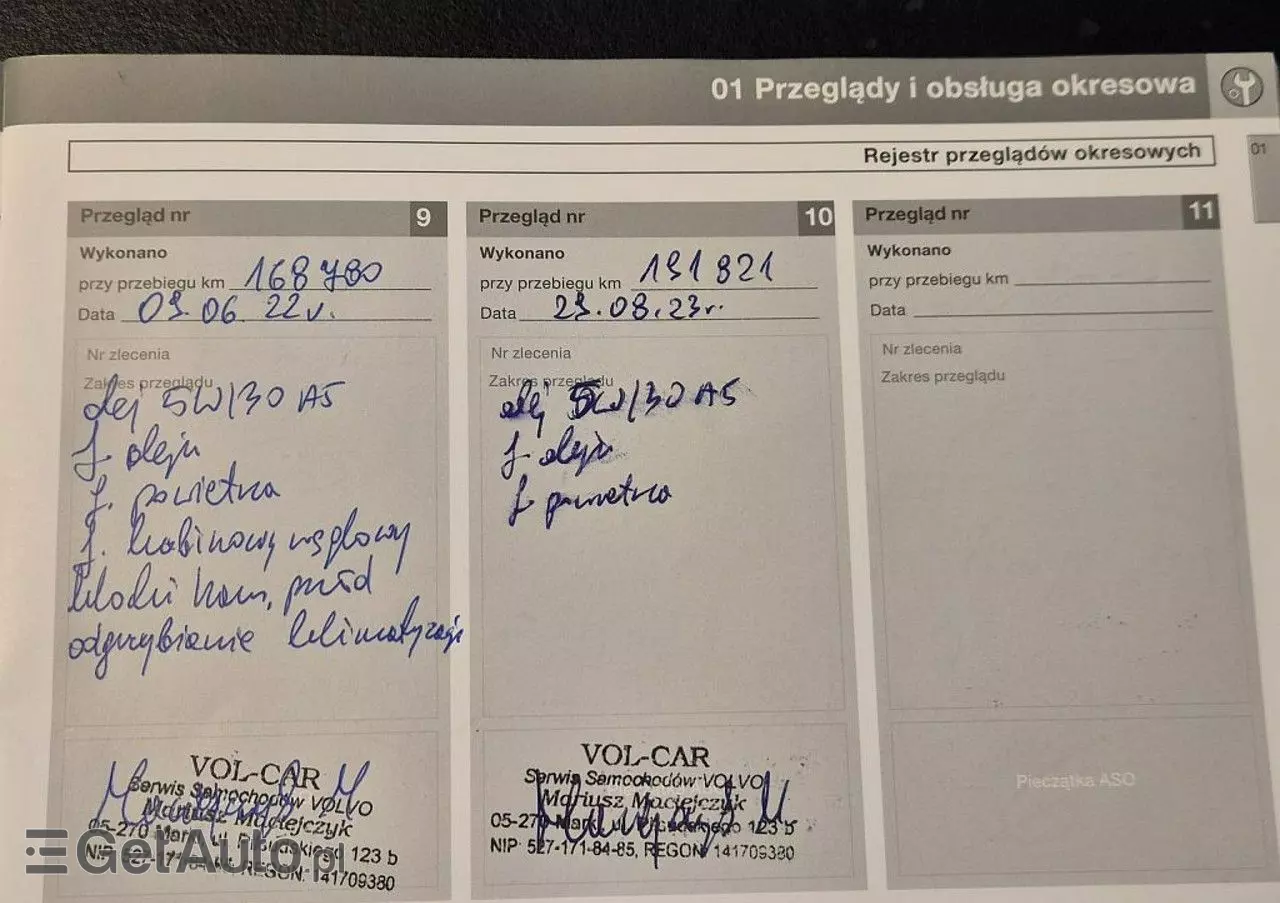 01 Przeglądy i obsługa okresowa
Rejestr przeglądów okresowych
01
Przegląd nr 9
Wykonano
przy przebiegu km 168 780
Data 09.06 22r.
Nr zlecenia
Zakres przeglądu
olej 5W/30 A5
f. oleju
f. powietrza
f. kabinowy węglowy
klocki ham, przód
odgrzybianie klimatyzacji
VOL-CAR
Serwis Samochodów VOLVO
Mariusz Maciejczyk
05-270 Marki, ul. Piłsudskiego 123 b
NIP 527-171-84-85, REGON: 141709380
Przegląd nr 10
Wykonano
przy przebiegu km 191 821
Data 29.08.23r.
Nr zlecenia
Zakres przeglądu
olej 5W/30 A5
f. oleju
f powietrza
VOL-CAR
Serwis Samochodów VOLVO
Mariusz Maciejczyk
05-270 Marki, ul. Piłsudskiego 123 b
NIP: 527-171-84-85, REGON: 141709380
Przegląd nr 11
Wykonano
przy przebiegu km
Data
Nr zlecenia
Zakres przeglądu
Pieczątka ASO
GetAuto.pl